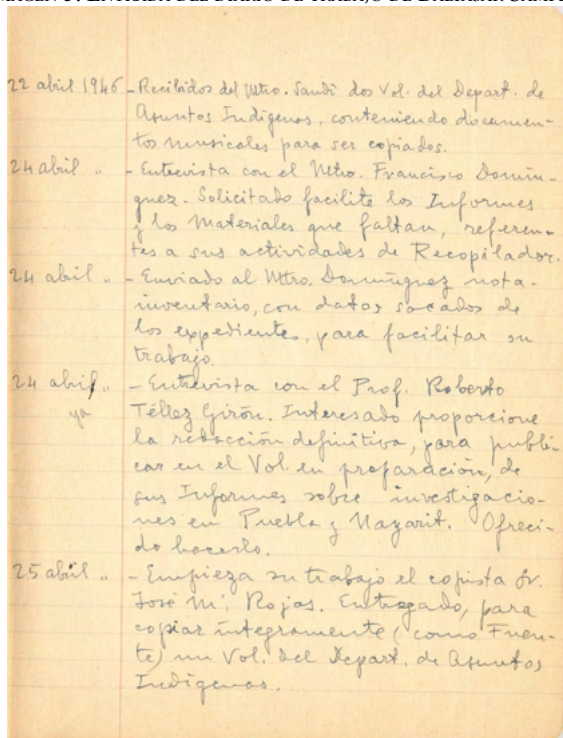 22 abril 1946 - Recibidos del Mtro. Sandi dos Vol. del Depart. de
Asuntos Indígenas, conteniendo documen-
tos musicales para ser copiados.
24 abril " - Entrevista con el Mtro. Francisco Domín-
guez. Solicitado facilite los Informes
y los Materiales que faltan, referen-
tes a sus actividades de Recopilador.
24 abril " - Enviado al Mtro. Domínguez nota-
inventario, con datos sacados de
los expedientes, para facilitar su
trabajo.
24 abril " - Entrevista con el Prof. Roberto
Téllez Girón. Interesado proporcione
la redacción definitiva, para publi-
car en el Vol. en preparación, de
sus Informes sobre investigacio-
nes en Puebla y Nayarit. Ofreci-
do hacerlo.
25 abril " - Empieza su trabajo el copista Sr.
José Mª. Rojas. Entregado, para
copiar íntegramente (como Fuen-
te) un Vol. del Depart. de Asuntos
Indígenas.